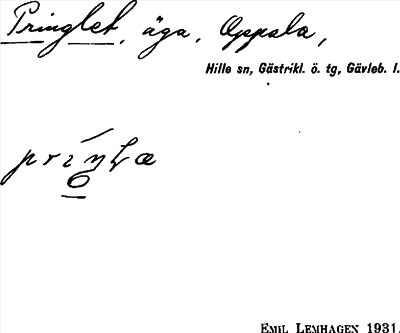 Pringlet, äga, Oppala,
Hille sn, Gästrikl. ö. tg, Gävleb. l.
EMIL LEMHAGEN 1931.